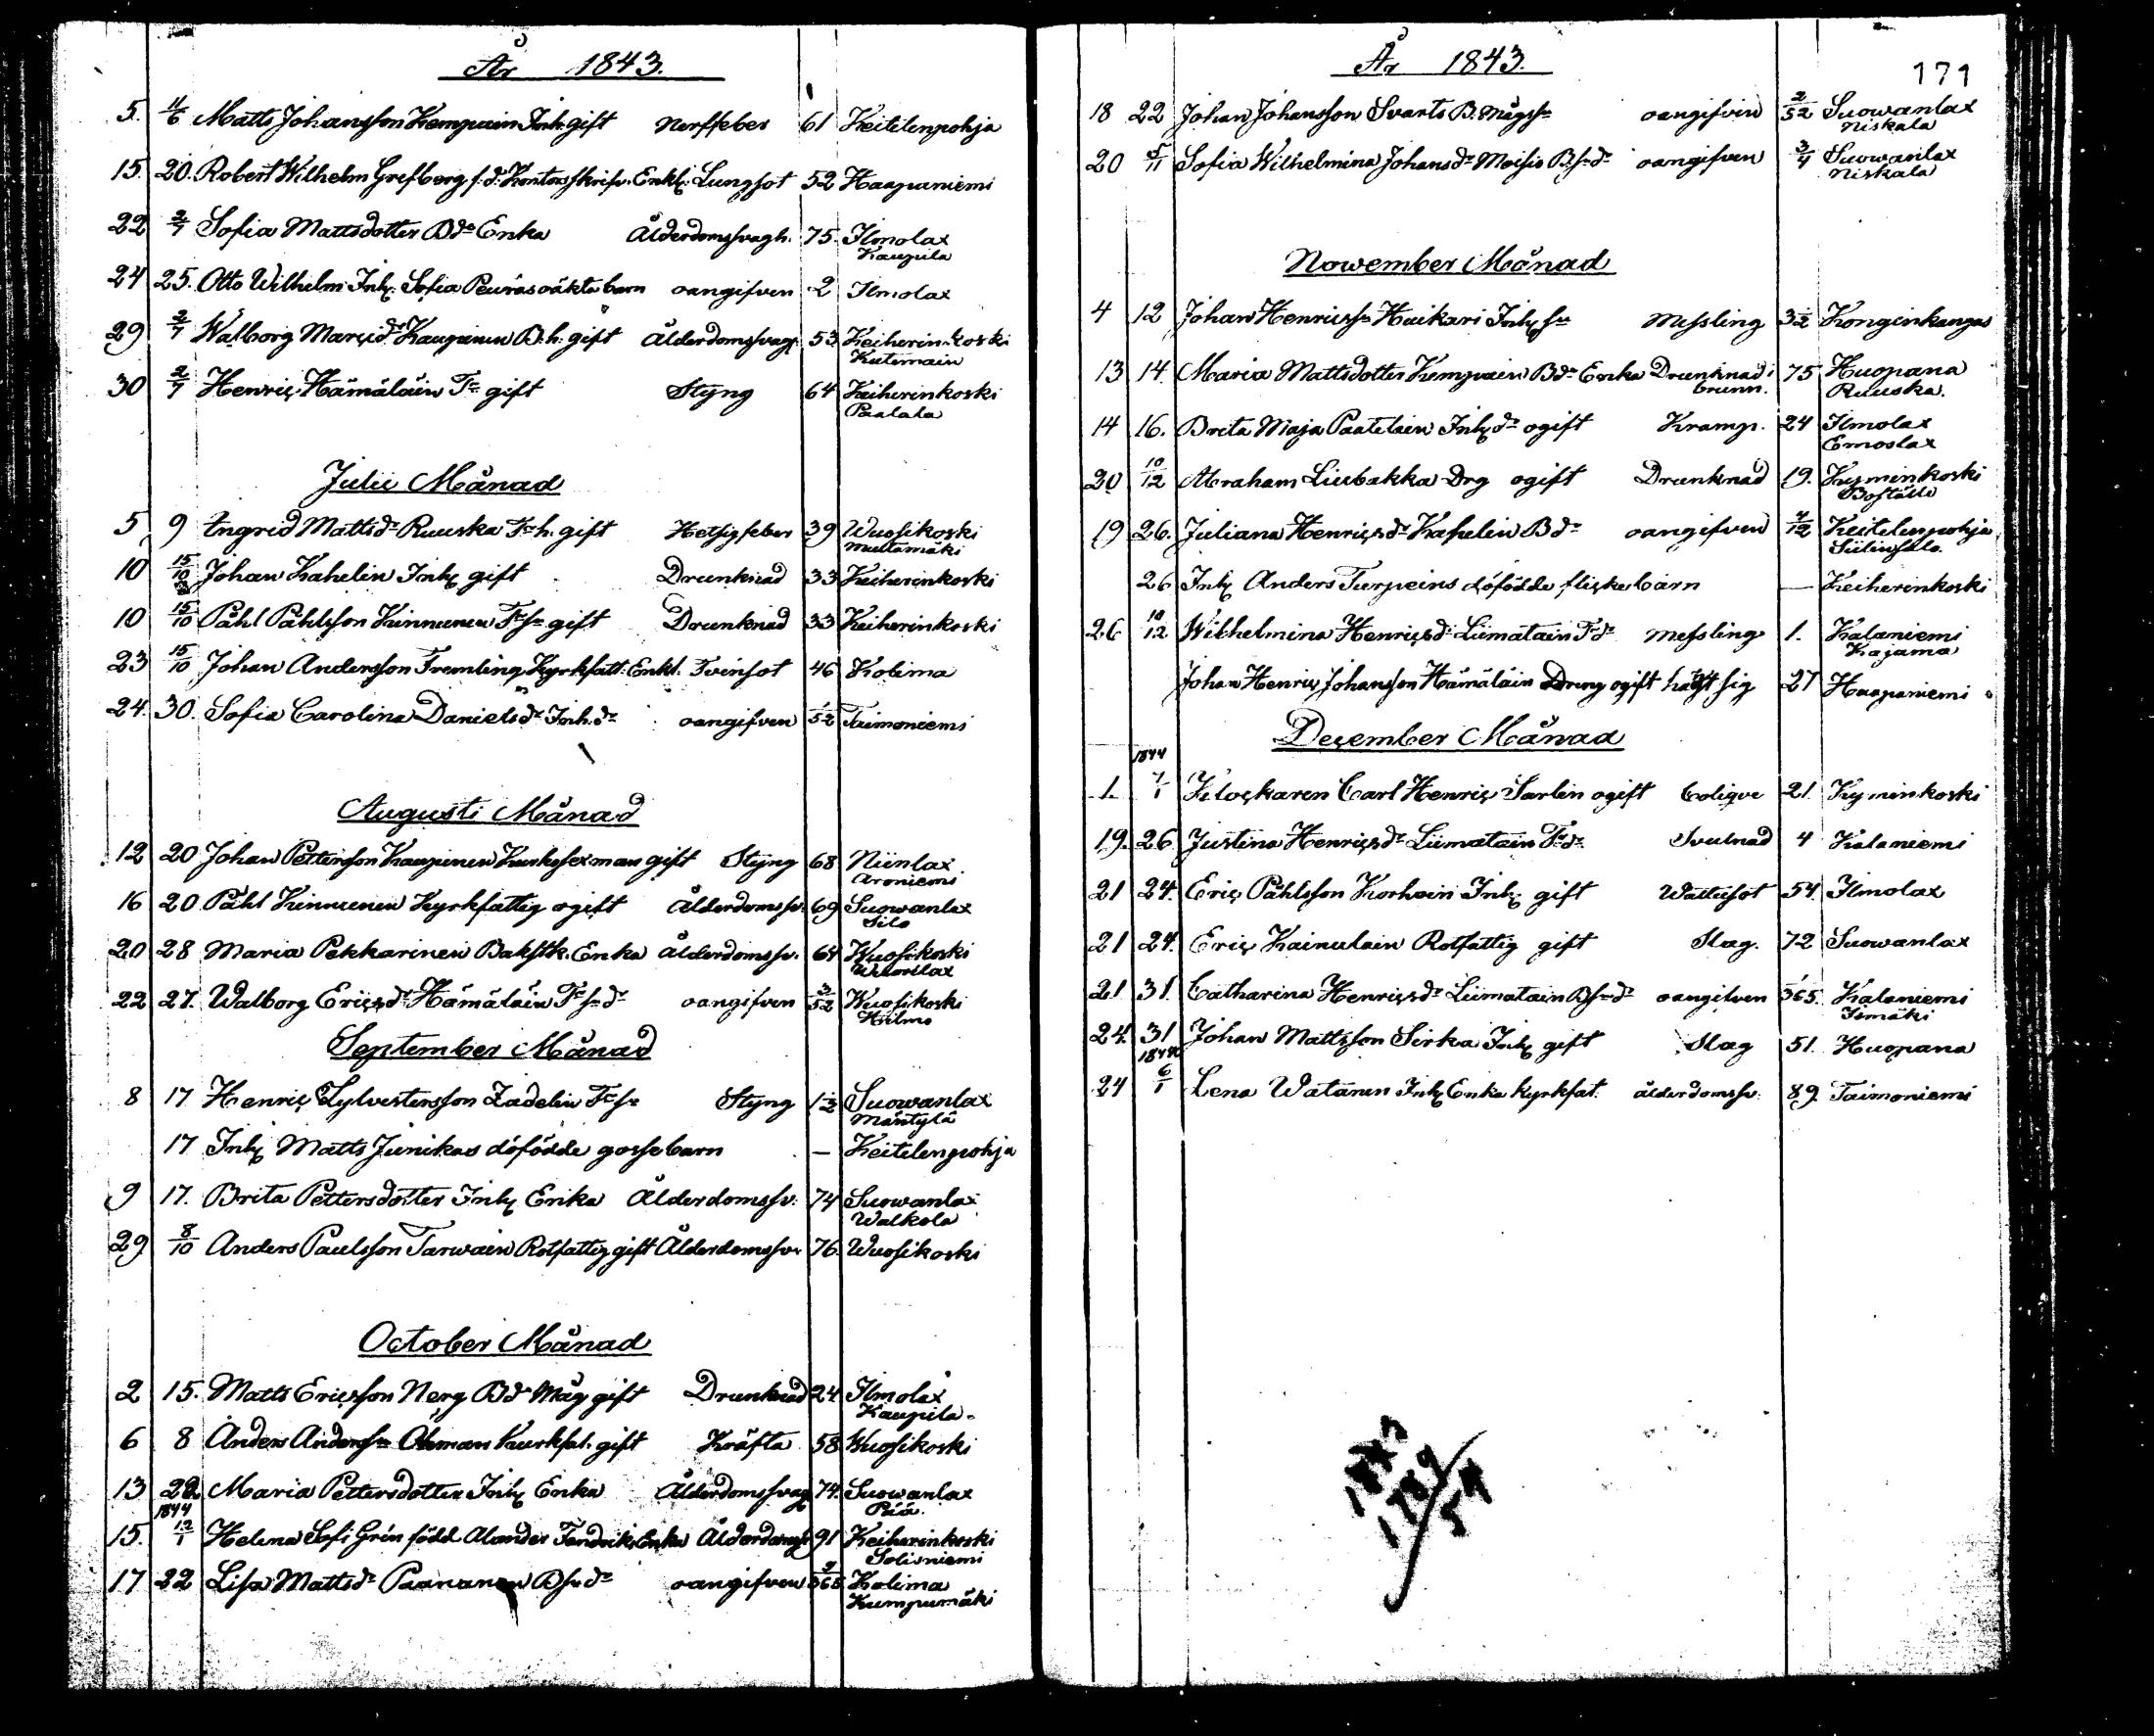 År 1843.
5. 11/6 Matts Johansson Kempain Inh: gift Nerffeber 61 Keitelenpohja
15. 20. Robert Wilhelm Grefberg f.d. Kontorsskrifv: Enkl: Lungsot 52 Haapaniemi
22 2/7 Sofia Mattsdotter Bde Enka Ålderdomssvagh. 75. Ilmolax
Kaupila
24 25. Otto Wilhelm Inh: Sofia Peuras oäkta barn oangifven 2 Ilmolax
29 2/7 Walborg Marcidr Kaupinen B.h. gift Ålderdomssvagh 53 Keiherinkoski
Kutemain
30 2/7 Henriç Hämäläin Tr gift Styng 64 Keiherinkoski
Paalala
Julii Månad
5 9 Ingrid Mattsdr Ruuska Tr h. gift Hetsigfeber 39 Wuosikoski
Multamäki
10 15/10 Johan Kahelin Inh gift Drunknad 33 Keiherinkoski
10 15/10 Påhl Påhlsson Kinnunen Tr Sn gift Drunknad 33 Keiherinkoski
23 15/10 Johan Andersson Fremling Kyrkfatt. Enkl. Tvinsot 46 Kolima
24. 30. Sofia Carolina Danielsdr Inh. dr oangifven 1/52 Taimoniemi
Augusti Månad
12 20 Johan Pettersson Kaupinen Kyrkosexman gift Styng 68 Niinlax
Aroniemi
16 20 Påhl Kinnunen Kyrkfattig ogift Ålderdomssv. 69 Suowanlax
Silo
20 28 Maria Pekkarinen Bakstk. Enka Ålderdomssv. 64 Wuosikoski
22 27. Walborg Ericsdr Hämäläin Tr Sn dr oangifven 3/52 Wuosikoski
Hilmo
September Månad
8 17 Henriç Sylvestersson Zadelin Tr Sn Styng 1 1/2 Suowanlax
Mäntylä
17 Inh Matts Junikas döfödde gossebarn — Keitelenpohja
9 17. Brita Pettersdotter Inh Enka Ålderdomssv: 74 Suowanlax
Walkola
29 8/10 Anders Paulsson Tarwain Rotfattig gift Ålderdomssv: 76 Wuosikoski
October Månad
2 15. Matts Ericsson Nerg Bde Måg gift Drunknad 24. Ilmolax
Kaupila
6 8 Anders Anderssn Öhman Kyrkfat. gift Kräfta 58 Wuosikoski
13 22 Maria Pettersdotter Inh Enka Ålderdomssvag 74. Suowanlax
Pää.
1844
15. 12/1 Helena Sofi Grén född Alander Fendriks Enka Ålderdomssv 91 Keiherinkoski
Solisniemi
17 22 Lisa Mattsdr Paananen B Sn dr oangifven 2/365 Kolima
Kumpumäki
År 1843.
171
18 22 Johan Johansson Svarts B. Mågsn oangifven 2/52 Suowanlax
Niskala
20 5/11 Sofia Wilhelmina Johansdr Moisio B Sn dr oangifven 3/4 Suowanlax
Niskala
Nowember Månad
4 12 Johan Henricssn Huikari Inh Sn Messling 3 1/2 Konginkangas
13 14. Maria Mattsdotter Kempain Bde Enka Drunknad i 75 Huopana
brunn. Ruuska.
14 16. Brita Maja Paatelain Inh dr ogift Kramp. 24 Ilmolax
Emoslax
20 10/12 Abraham Liubakka Drg ogift Drunknad 19. Kyminkoski
Boställe
19 26. Juliana Henricsdr Kahelin B dr oangifven 4/12 Keitelenpohja
26 Inh Anders Turpeins döfödde flickebarn — Keiherinkoski
26 10/12 Wilhelmina Henricsdr Liimatain Tr dr Messling 1. Kalaniemi
Kajama
Johan Henric Johansson Hämäläin Dreng ogift hängt sig 27 Haapaniemi
December Månad
1844
1. 7/1 Klockaren Carl Henric Sarlin ogift Colique 21. Kyminkoski
19. 26 Justina Henricsdr Liimatain Tr dr Svulnad 4 Kalaniemi
21 24. Eric Påhlsson Korhoin Inh gift Wattusot 54. Ilmolax
21 24. Eric Kainulain Rotfattig gift Slag. 72 Suowanlax
21 31. Catharina Henricsdr Liimatain B Sn dr oangifven 1/365. Kalaniemi
Isomäki
24. 31 Johan Mattsson Sirka Inh gift Slag 51. Huopana
1844
24 6/1 Lena Watanen Inh Enka Kyrkfat. ålderdomssv: 89. Taimoniemi
1843
1789
54